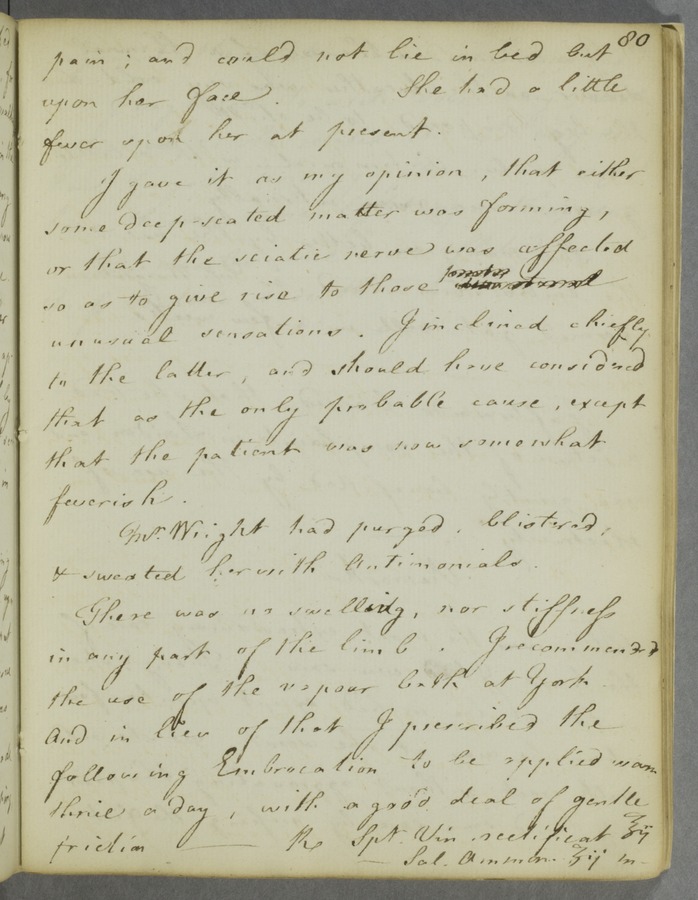 80
pain ; and could not lie in bed but
upon her face. She had a little
fever upon her at present.
I gave it as my opinion, that either
some deep-seated matter was forming,
or that the sciatic nerve was affected
so as to give rise to those
unusual sensations. I inclined chiefly
to the latter, and should have considered
that as the only probable cause, except
that the patient was now somewhat
feverish.
Mr. Wright had purged, blistered,
& sweated her with Antimonials.
There was no swelling, nor stiffness
in any part of the limb. I recommended
the use of the vapour bath at York
And in lieu of that I prescribed the
following Embrocation to be applied warm
thrice a day, with a good deal of gentle
friction — Rx Spt. Vin. rectificat ʒij
— Sal. Ammon. ʒij m-